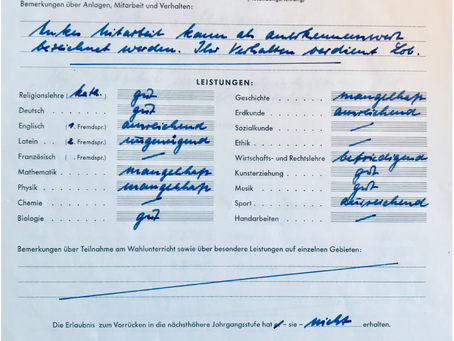 Bemerkungen über Anlagen, Mitarbeit und Verhalten:
Mitarbeit kann als anerkennenswert
bezeichnet werden. Ihr Verhalten verdient Lob.
LEISTUNGEN:
Religionslehre (kath.) gut
Deutsch gut
Englisch (1. Fremdspr.) ausreichend
Latein (2. Fremdspr.) ungenügend
Französisch ( . Fremdspr.) —
Mathematik mangelhaft
Physik mangelhaft
Chemie —
Biologie gut
Geschichte mangelhaft
Erdkunde ausreichend
Sozialkunde —
Ethik —
Wirtschafts- und Rechtslehre befriedigend
Kunsterziehung gut
Musik gut
Sport ausreichend
Handarbeiten —
Bemerkungen über Teilnahme am Wahlunterricht sowie über besondere Leistungen auf einzelnen Gebieten:
Die Erlaubnis zum Vorrücken in die nächsthöhere Jahrgangsstufe hat – sie – nicht erhalten.